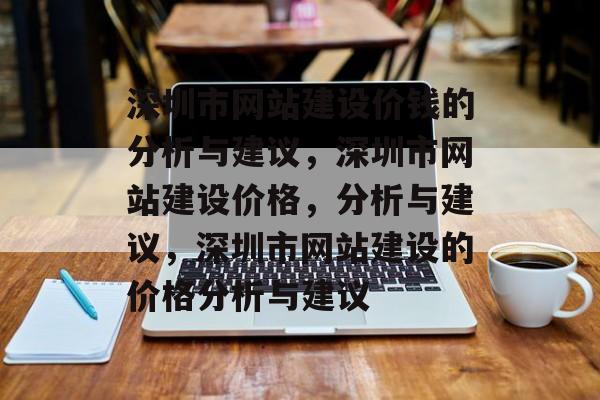 深圳市网站建设价钱的
分析与建议，深圳市网
站建设价格，分析与建
议，深圳市网站建设的
价格分析与建议